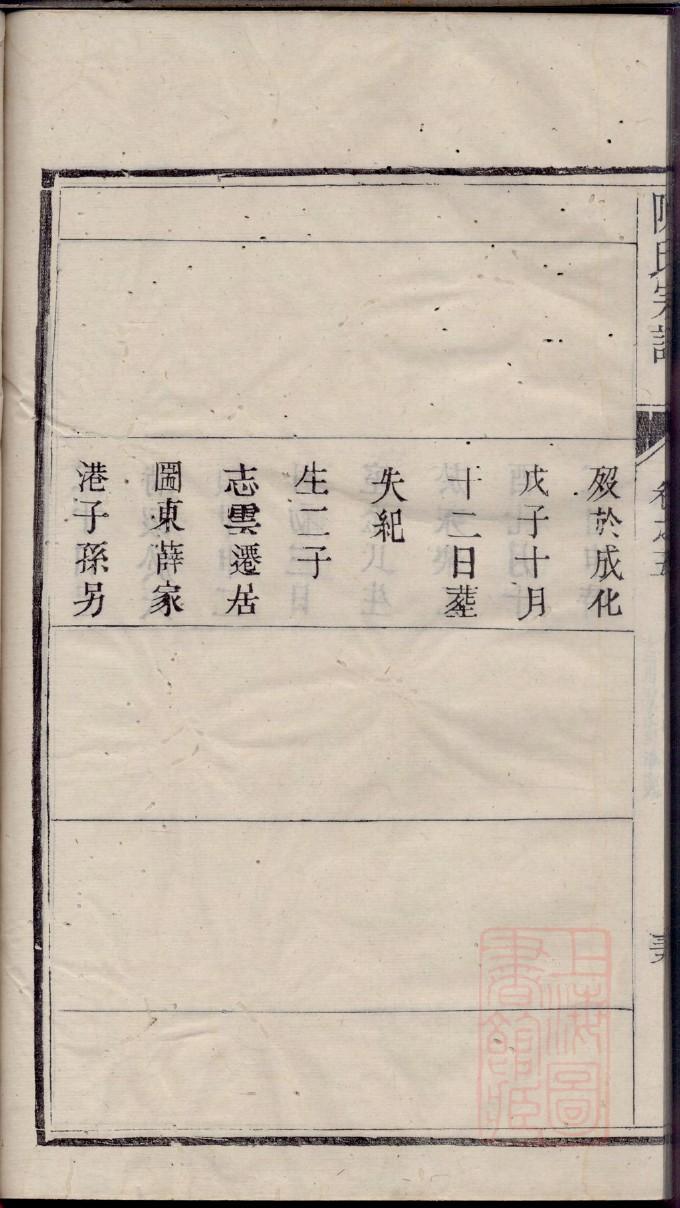 陳氏宗譜
卷之五
歿於成化
戊子十月
十二日塟
失紀
生二子
志雲遷居
圖東薛家
港子孫另
上海圖
書館藏